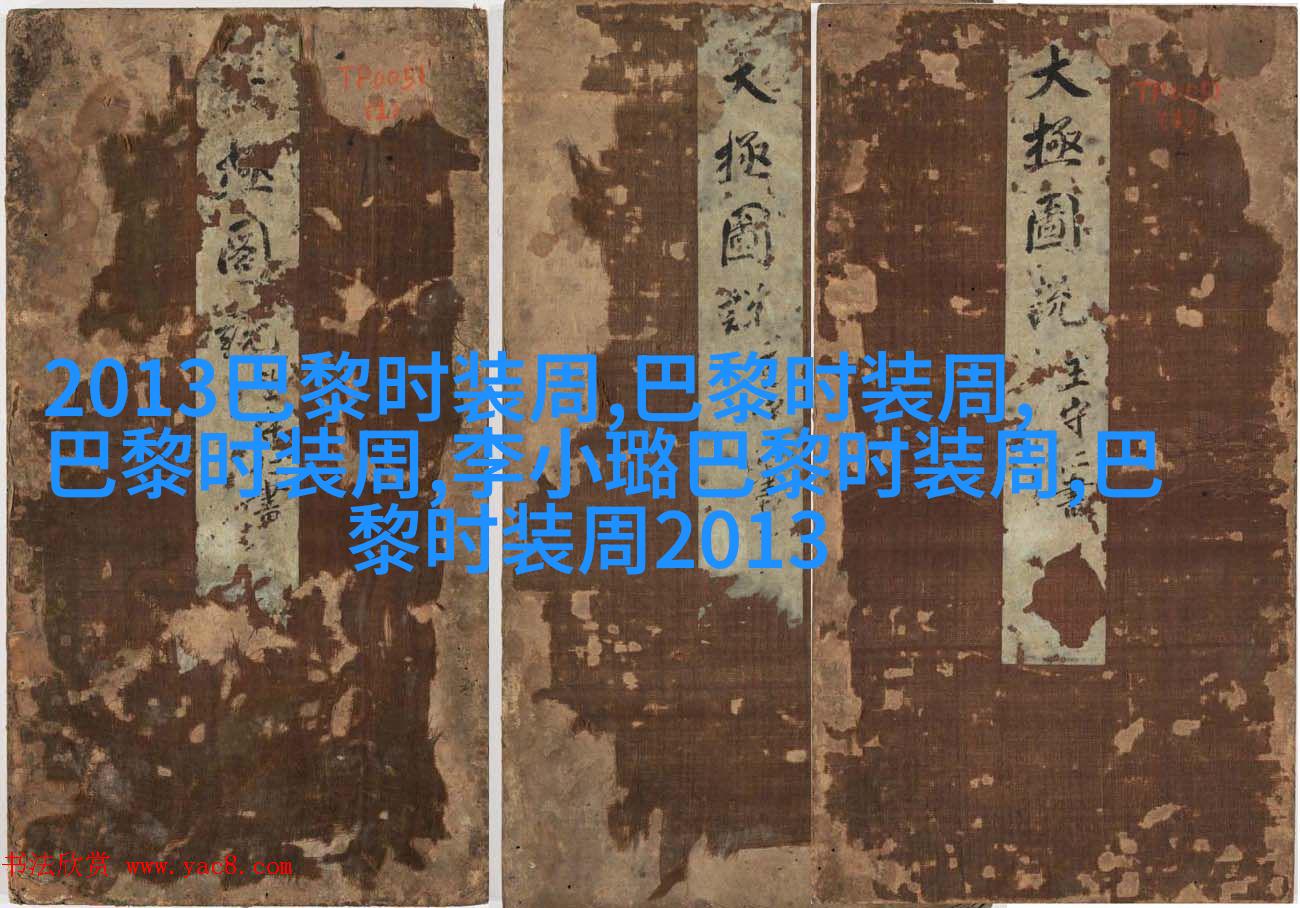 2013巴黎时装周,巴黎时装周,
巴黎时装周,李小璐巴黎时装周,巴
黎时装周2013
極圖說
TP0051
(1)
大極圖說
大極圖说
王守仁書
书法欣赏 www.yac8.com